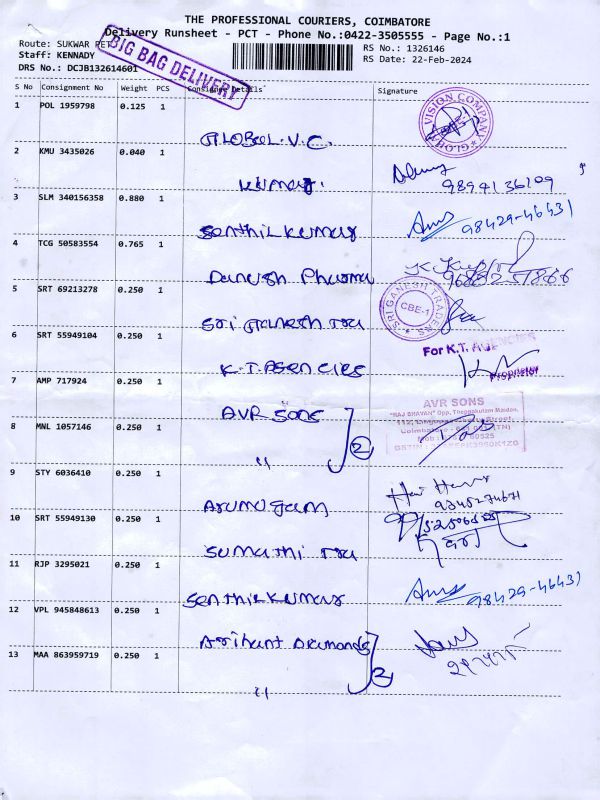 THE PROFESSIONAL COURIERS, COIMBATORE
Delivery Runsheet - PCT - Phone No.:0422-3505555 - Page No.:1
Route: SUKWAR PET
RS No.: 1326146
Staff: KENNADY
RS Date: 22-Feb-2024
DRS No.: DCJB132614601
BIG BAG DELIVERY
S No Consignment No Weight PCS Consignee Details Signature
1 POL 1959798 0.125 1
VISION COMPANY
GLOBEL.V.C.
2 KMU 3435026 0.040 1
Kumar.
9894136109
3 SLM 340156358 0.880 1
98429-46431
Senthil Kumar
4 TCG 50583554 0.765 1
Danush Pharma
5 SRT 69213278 0.250 1
SRI GANESH TRADERS
CBE-1
Sri Ganesh Tra
6 SRT 55949104 0.250 1
For K.T. AGENCIES
K.T. Agencies
Proprietor
7 AMP 717924 0.250 1
AVR SONS
AVR SONS
"RAJ BHAVAN" Opp. Theppakulam Maidan,
8 MNL 1057146 0.250 1
2
"
9 STY 6036410 0.250 1
Arumugam
10 SRT 55949130 0.250 1
Sumathi Tra
11 RJP 3295021 0.250 1
Senthil Kumar
98429-46431
12 VPL 945848613 0.250 1
Arihant Diamonds
13 MAA 863959719 0.250 1
2
"